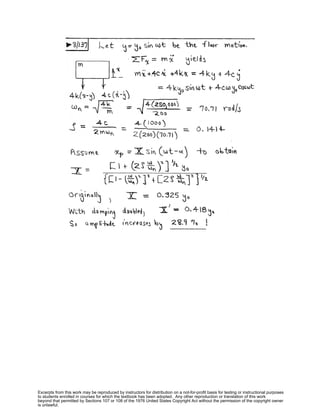 ▶8/137 Let y = y₀ sin ωt be the floor motion.
ΣFₓ = mẍ yields
m
x
mẍ + 4cẋ + 4kx = 4ky + 4cẏ
4k(x-y) 4c(ẋ-ẏ)
= 4ky₀ sin ωt + 4cωy₀ cos ωt
ωₙ = √(4k/m) = √(4(250,000)/200) = 70.71 rad/s
ζ = 4c/(2mωₙ) = 4(1000)/(2(200)(70.71)) = 0.1414
Assume xₚ = X sin(ωt-α) to obtain
X = [1 + (2ζ ω/ωₙ)²]^(1/2) y₀ / {[1-(ω/ωₙ)²]² + [2ζ ω/ωₙ]²}^(1/2)
Originally, X = 0.325 y₀
With damping doubled, X' = 0.418 y₀
So amplitude increases by 28.9 % !
Excerpts from this work may be reproduced by instructors for distribution on a not-for-profit basis for testing or instructional purposes
to students enrolled in courses for which the textbook has been adopted. Any other reproduction or translation of this work
beyond that permitted by Sections 107 or 108 of the 1976 United States Copyright Act without the permission of the copyright owner
is unlawful.